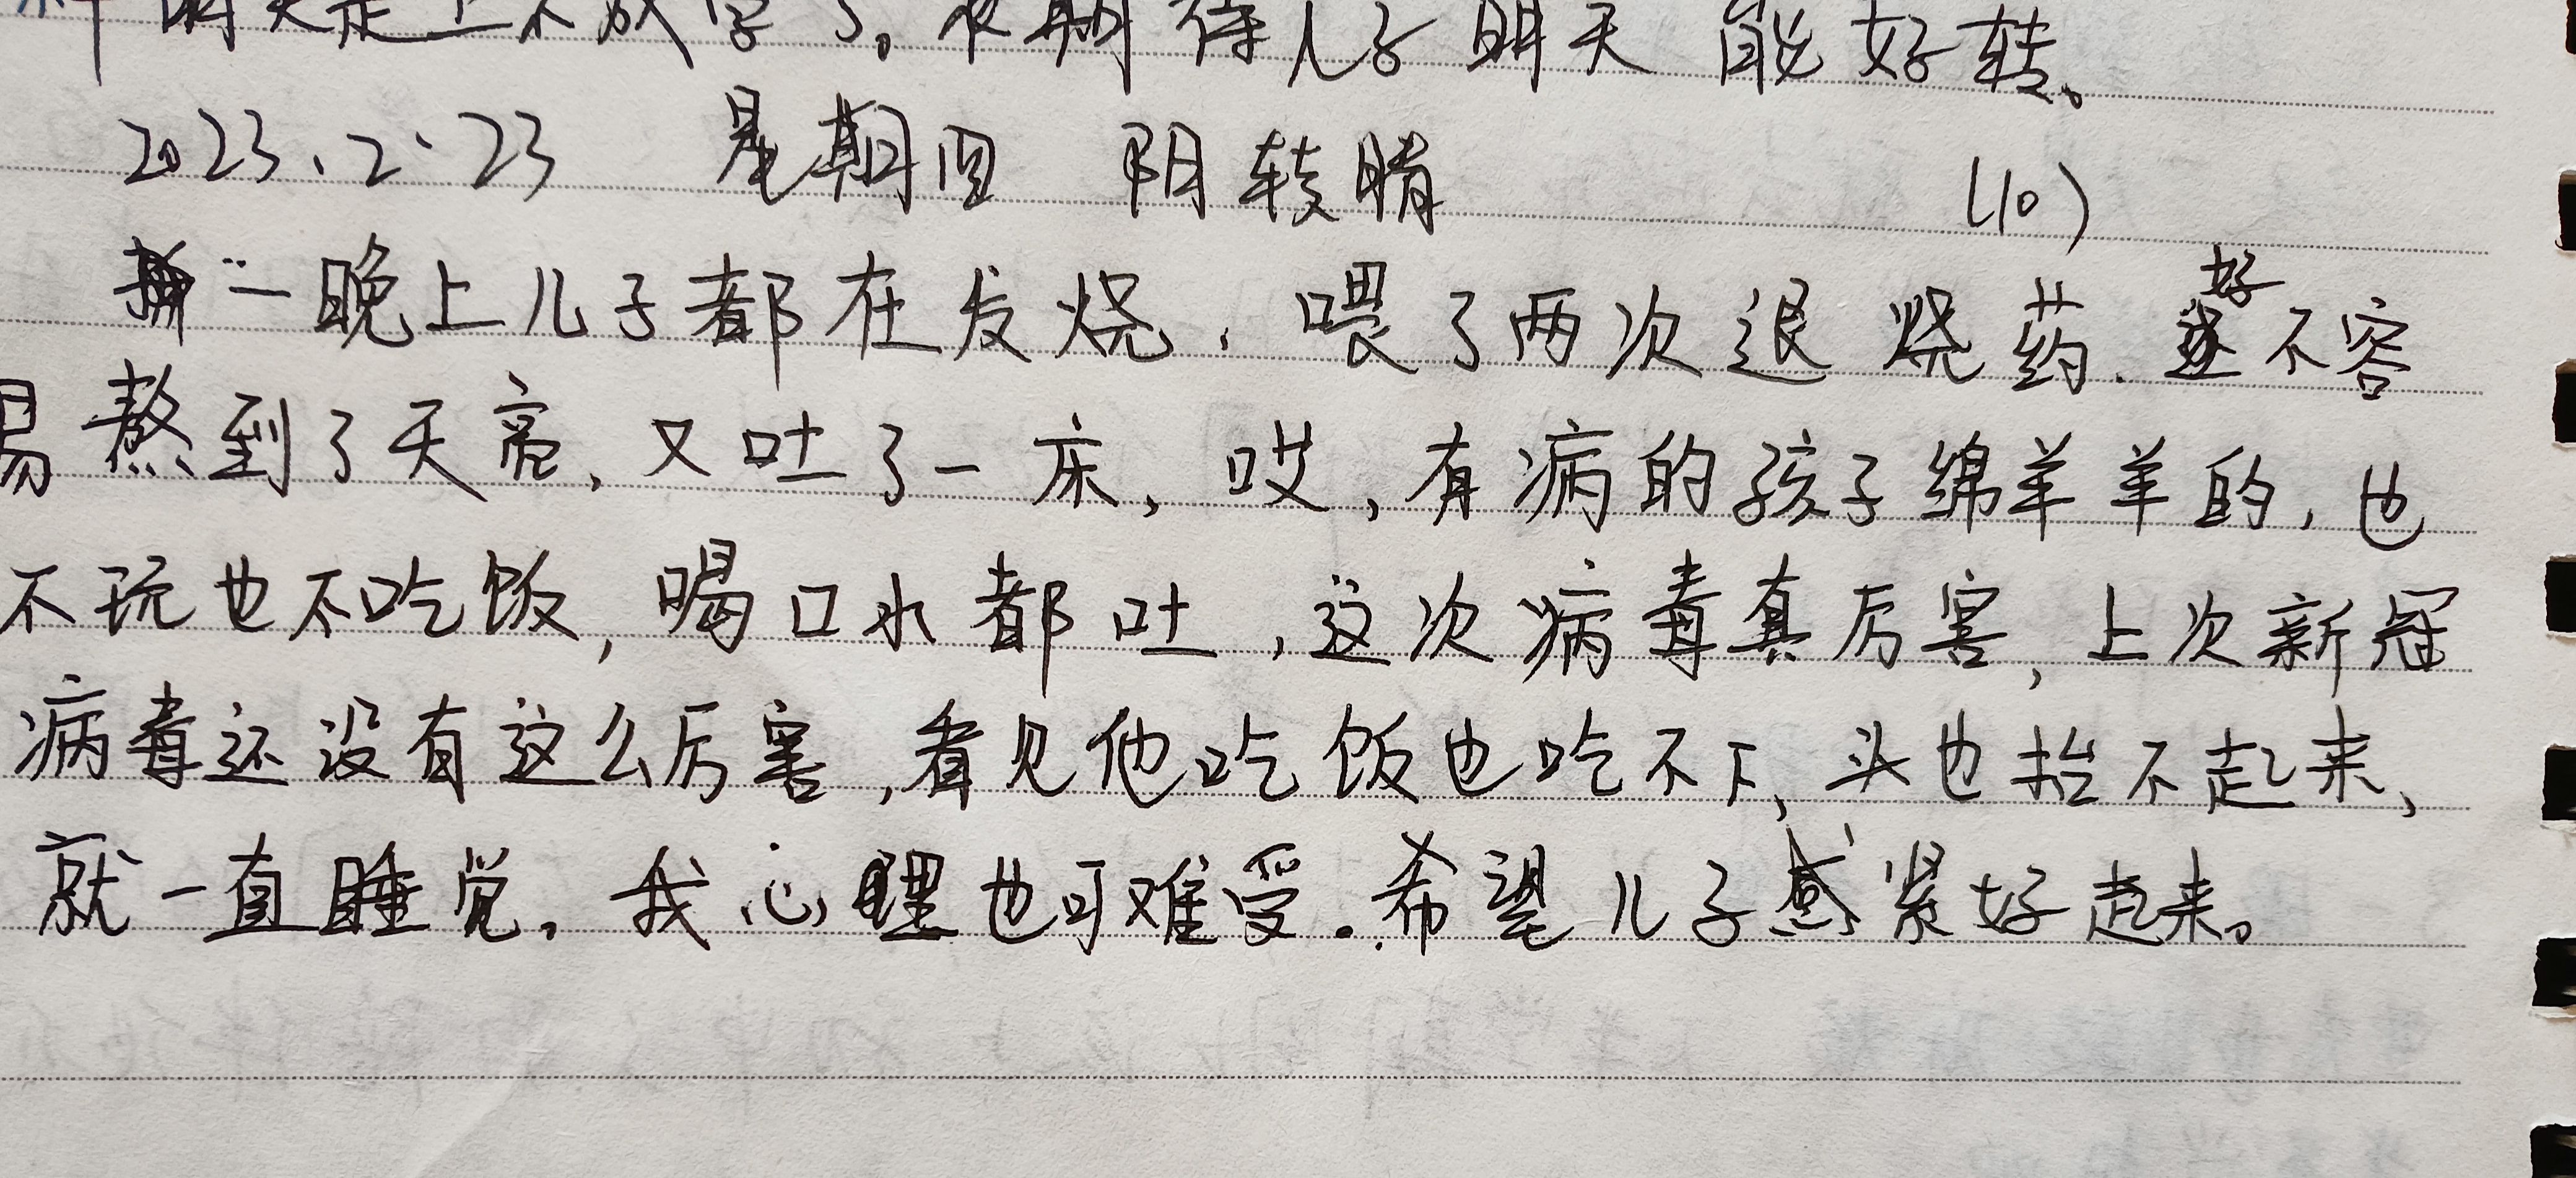 明天是上不成学了。衣期待儿子明天能好转。
2023.2.23 星期四 阴转晴 (10)
一晚上儿子都在发烧，喂了两次退烧药．好不容
易熬到了天亮，又吐了一床，哎，有病的孩子绵羊羊的，也
不玩也不吃饭，喝口水都吐，这次病毒真厉害，上次新冠
病毒还没有这么厉害，看见他吃饭也吃不下，头也抬不起来，
就一直睡觉，我心理也可难受．希望儿子感紧好起来。